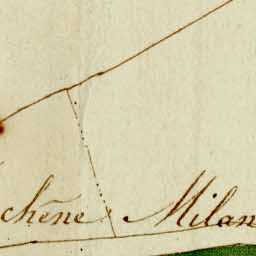 chêne Milan